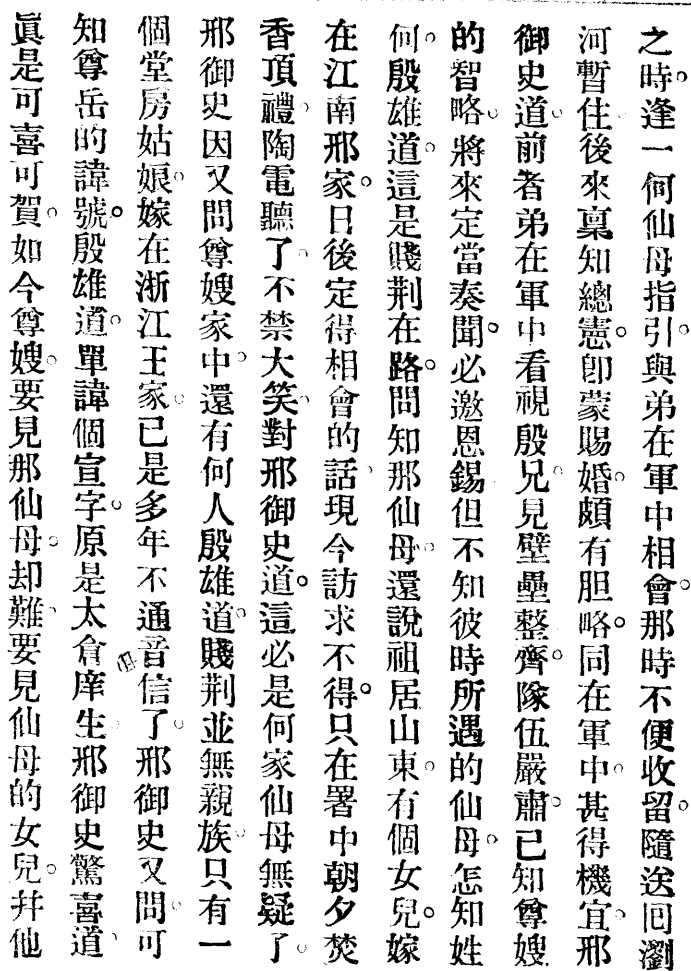 之時。逢一何仙母指引。與弟在軍中相會。那時不便收留。隨送回瀏
河暫住。後來稟知總憲。卽蒙賜婚。頗有胆略。同在軍中。甚得機宜。邢
御史道。前者弟在軍中看視殷兄。見壁壘整齊。隊伍嚴肅。已知尊嫂
的智略。將來定當奏聞。必邀恩錫。但不知彼時所遇的仙母。怎知姓
何。殷雄道。這是賤荆在路。問知那仙母。還說祖居山東。有個女兒。嫁
在江南邢家。日後定得相會的話。現今訪求不得。只在署中朝夕焚
香頂禮。陶電聽了。不禁大笑。對邢御史道。這必是何家仙母無疑了。
邢御史因又問尊嫂家中。還有何人。殷雄道。賤荆並無親族。只有一
個堂房姑娘。嫁在浙江王家。已是多年不通音信了。邢御史又問。可
知尊岳的諱號。殷雄道。單諱個宣字。原是太倉庠生。邢御史驚喜道。
眞是可喜可賀。如今尊嫂。要見那仙母。却難。要見仙母的女兒。幷他